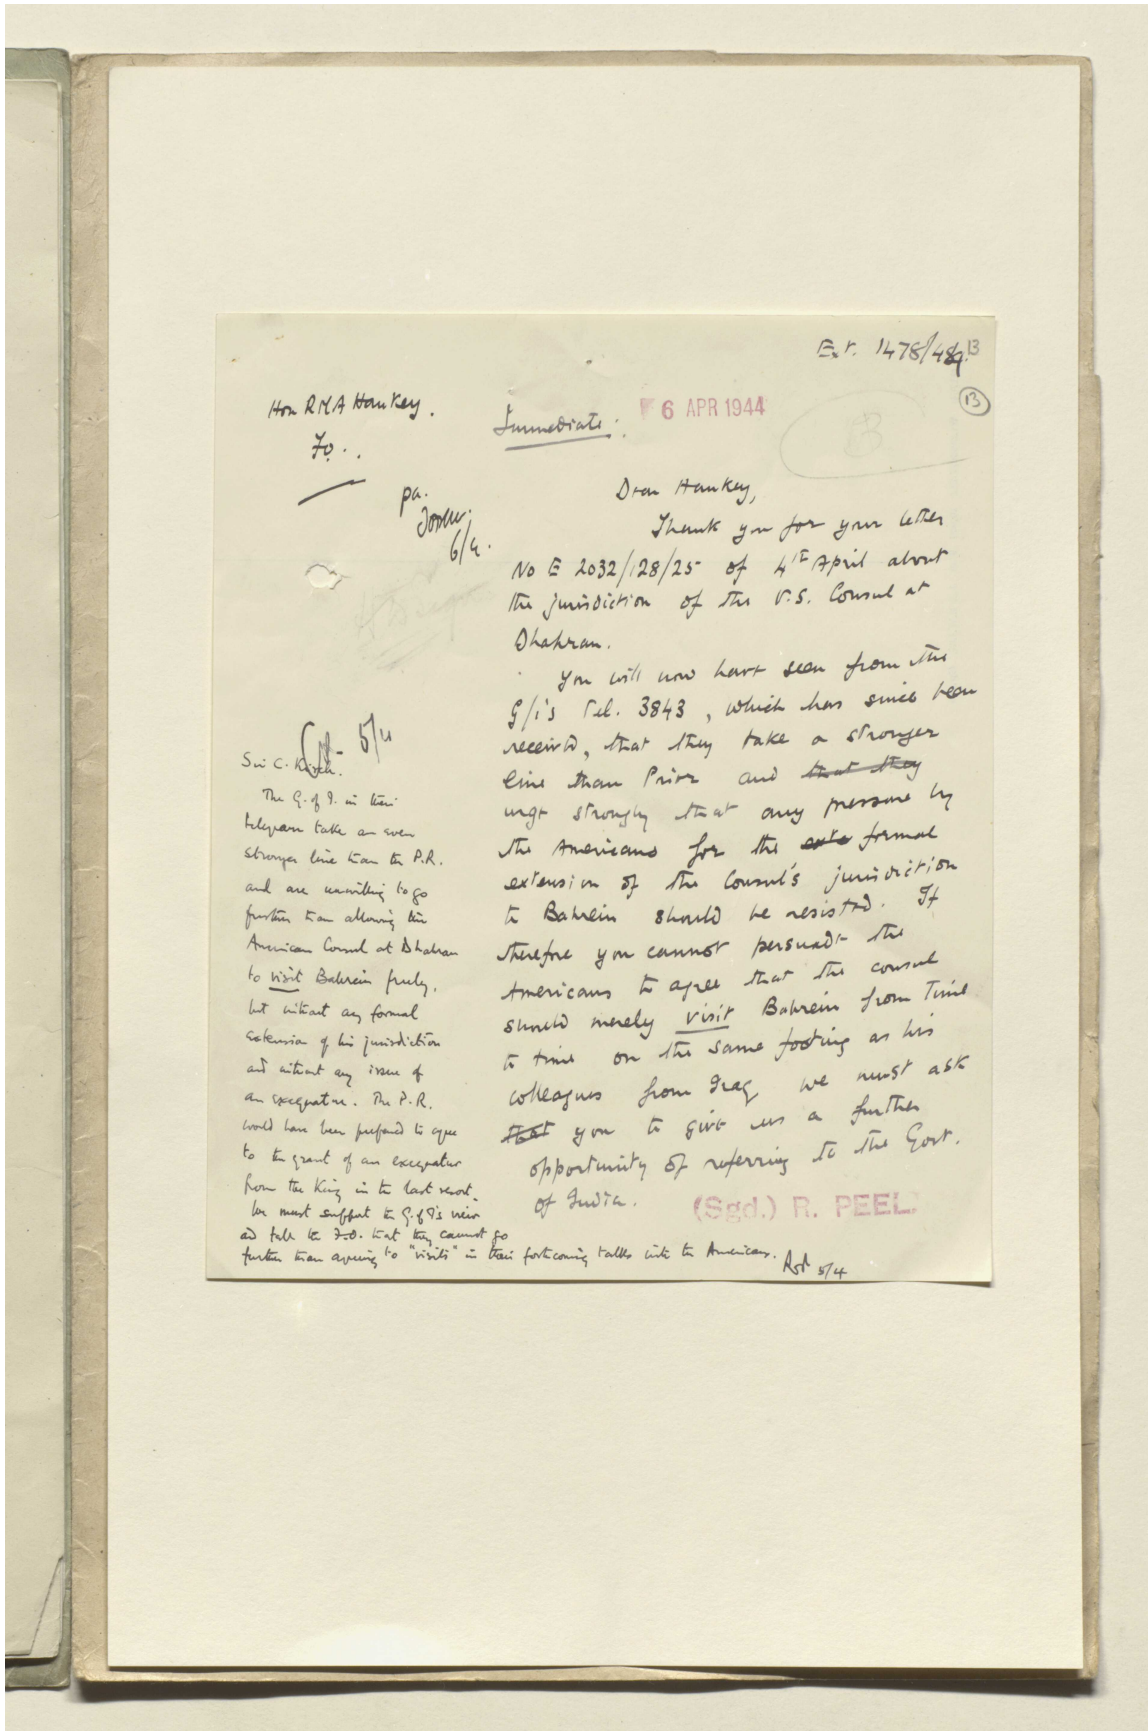 Ext. 1478/44
13
13
Hon RMA Hankey.
FO.
Immediate.
6 APR 1944
pa.
6/4.
Dear Hankey,
Thank you for your letter
No E 2032/128/25 of 4th April about
the jurisdiction of the U.S. Consul at
Dhahran.
You will now have seen from the
G/I's Tel. 3843, which has since been
received, that they take a stronger
line than Prior and that they
urge strongly that any pressure by
the Americans for the exte formal
extension of the Consul's jurisdiction
to Bahrein should be resisted. If
therefore you cannot persuade the
Americans to agree that the consul
should merely visit Bahrein from time
to time on the same footing as his
colleagues from Iraq we must ask
that you to give us a further
opportunity of referring to the Govt.
of India.
(Sgd.) R. PEEL.
5/4
Sir C.
The G. of I. in their
telegram take an even
stronger line than the P.R.
and are unwilling to go
further than allowing the
American Consul at Dhahran
to visit Bahrein freely,
but without any formal
extension of his jurisdiction
and without any issue of
an exequatur. The P.R.
would have been prepared to agree
to the grant of an exequatur
from the King in the last resort.
We must support the G. of I's view
and tell the F.O. that they cannot go
further than agreeing to "visits" in their forthcoming talks with the Americans.
5/4